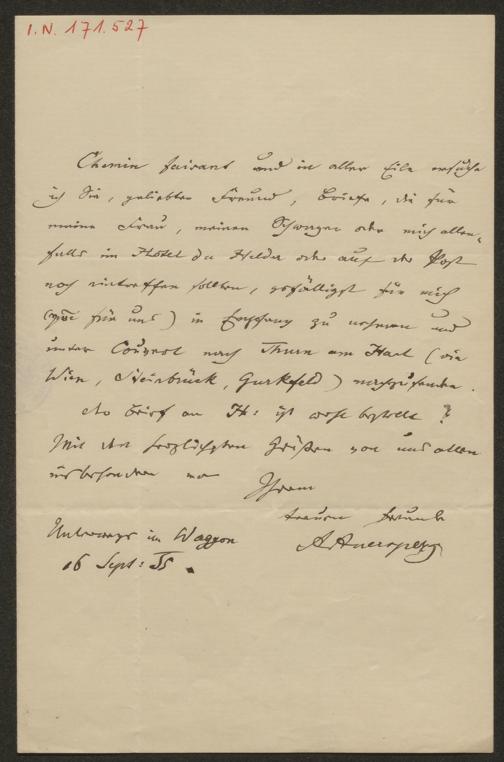 I.N. 171.527
Chemin faisant und in aller Eile ersuche
ich Sie, geliebter Freund, Briefe, die für
meine Frau, meinen Schwager oder mich allen-
falls im Hotel du Helder oder auf der Post
noch eintreffen sollten, gefälligst für mich
(für uns) in Empfang zu nehmen und
unter Couvert nach Thurn am Hart (via
Wien, Steinbrück, Gurkfeld) nachzusenden.
Der Brief an H: ist wohl bestellt?
Mit den herzlichsten Grüßen von uns allen
insbesondere von
Ihrem
treuen Freunde
AAuersperg
Unterwegs im Waggon
16 Sept: 55.